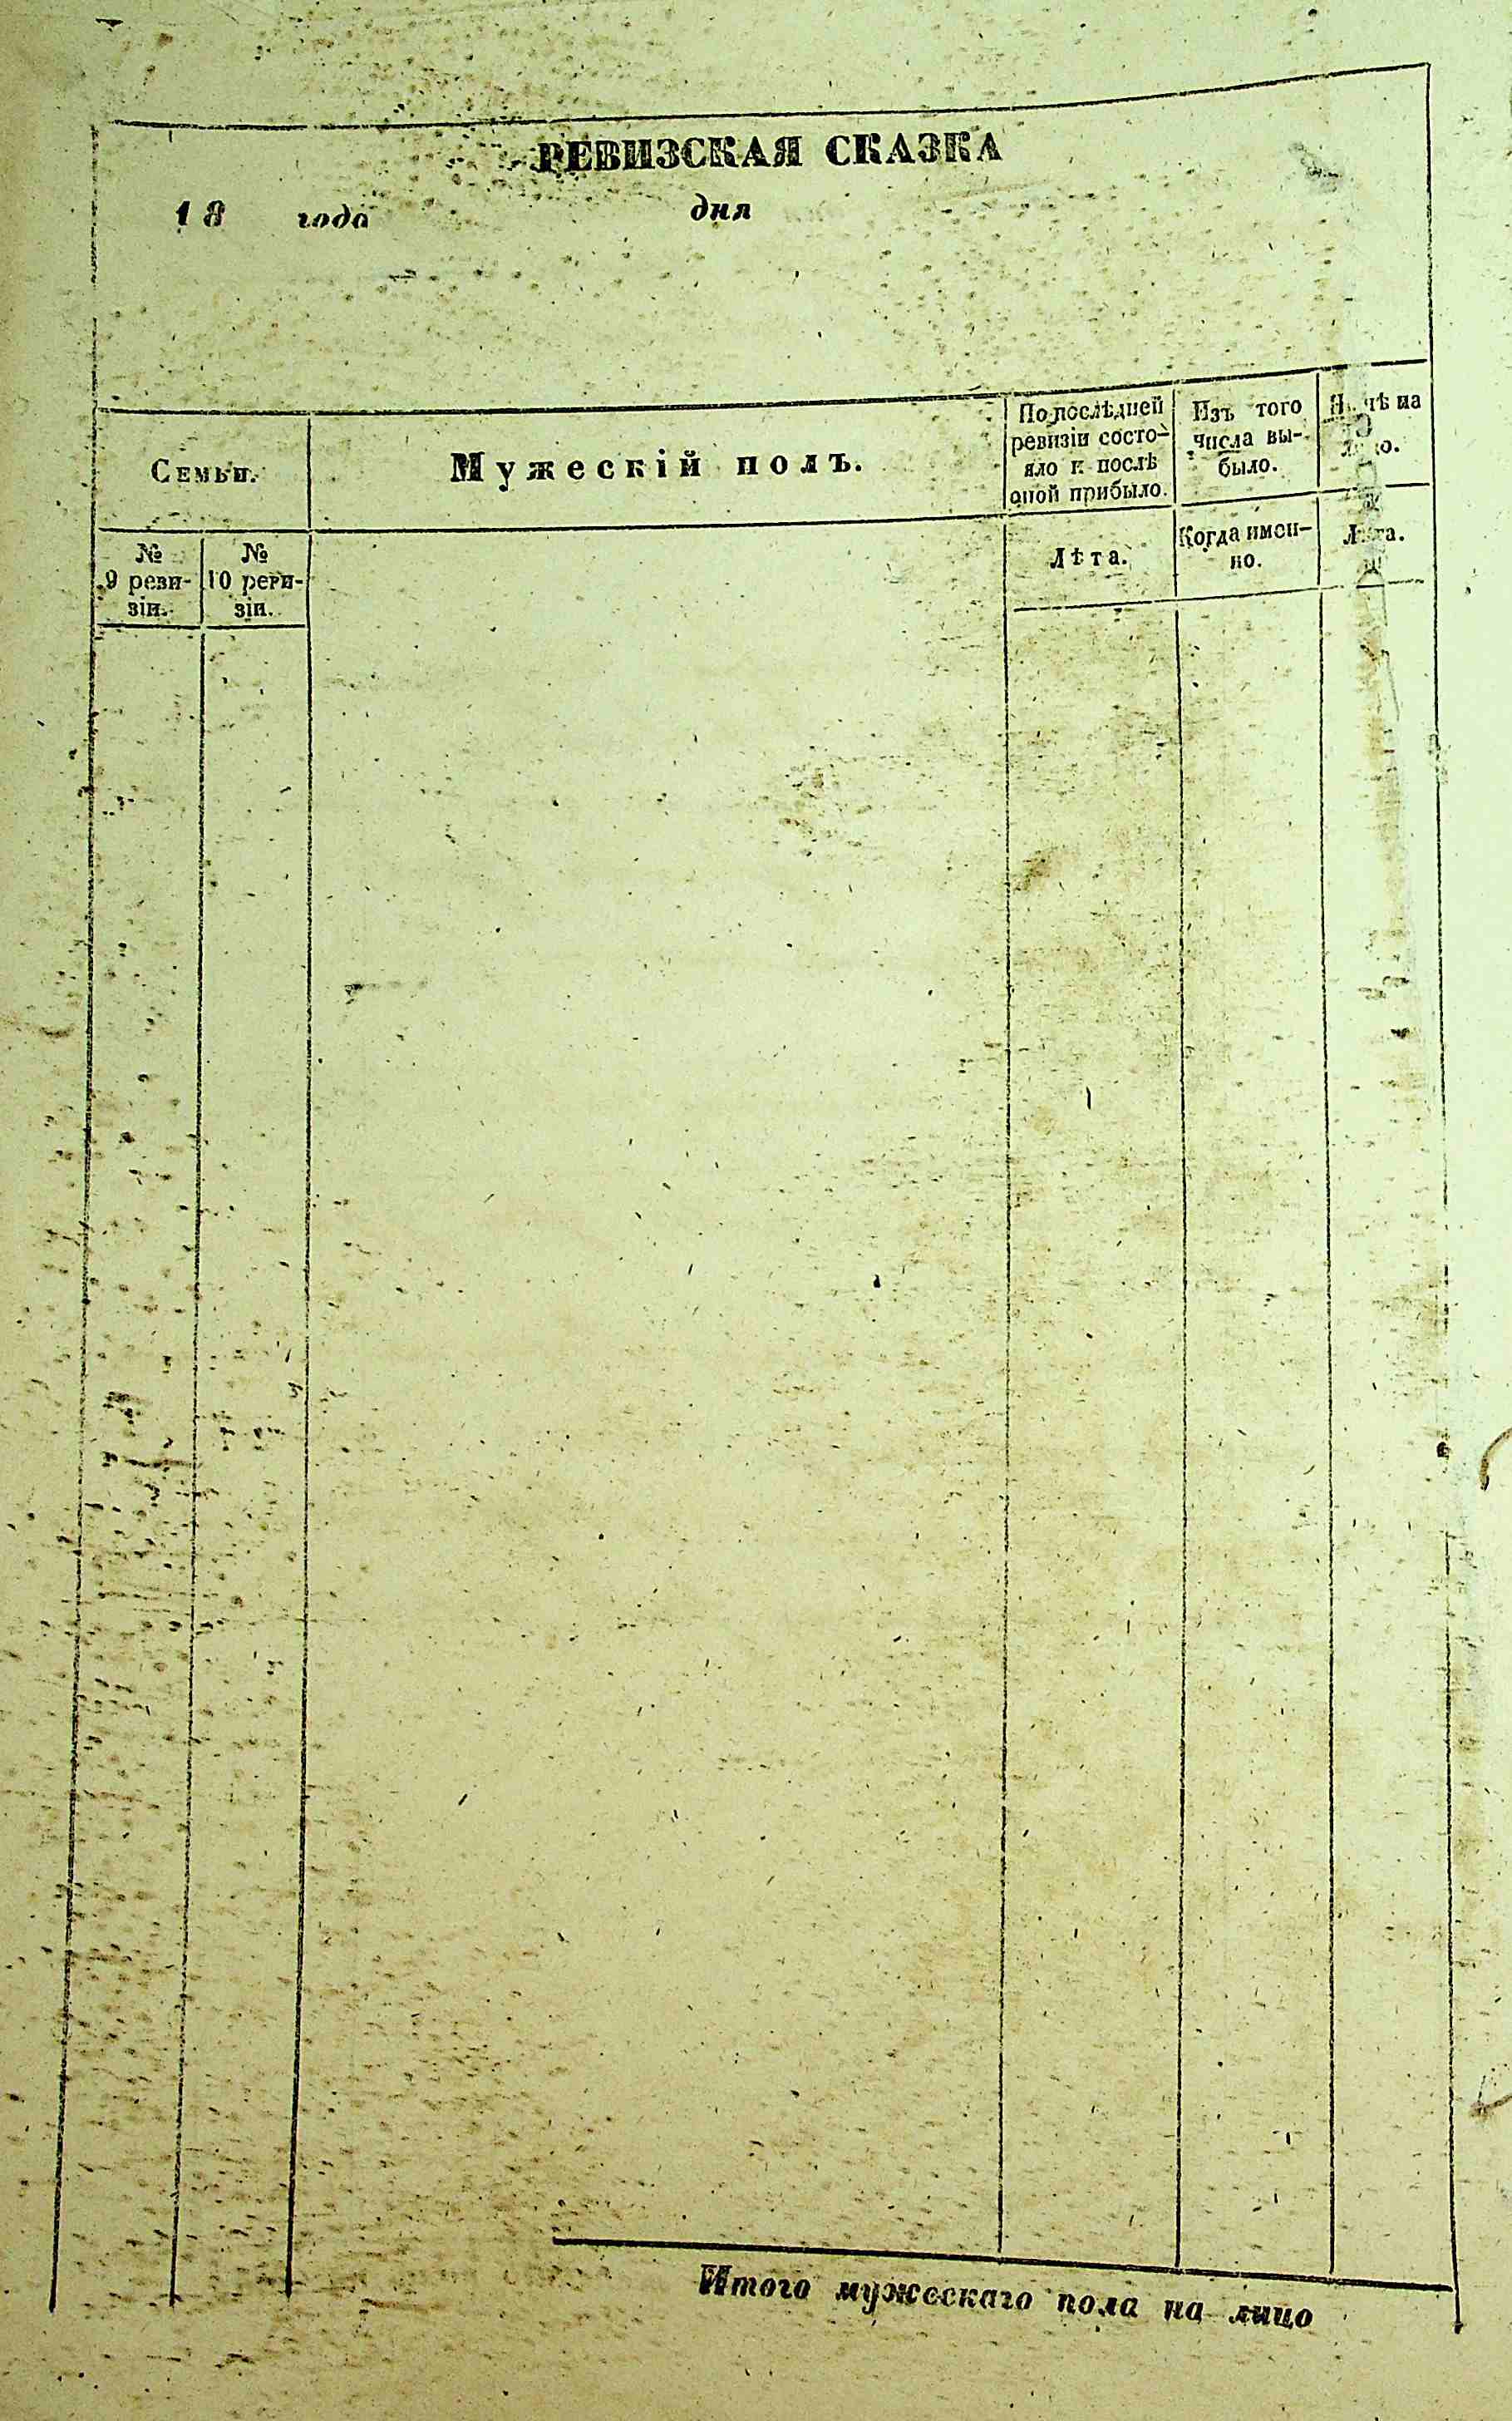 РЕВИЗСКАЯ СКАЗКА
18 года дня
Семьи.
Мужескій полъ.
По послѣдней
ревизіи состо-
яло и послѣ
оной прибыло.
Изъ того
числа вы-
было.
на
№
9 реви-
зіи.
№
10 реви-
зіи.
Лѣта.
Когда имен-
но.
Лѣта.
Итого мужескаго пола на лицо